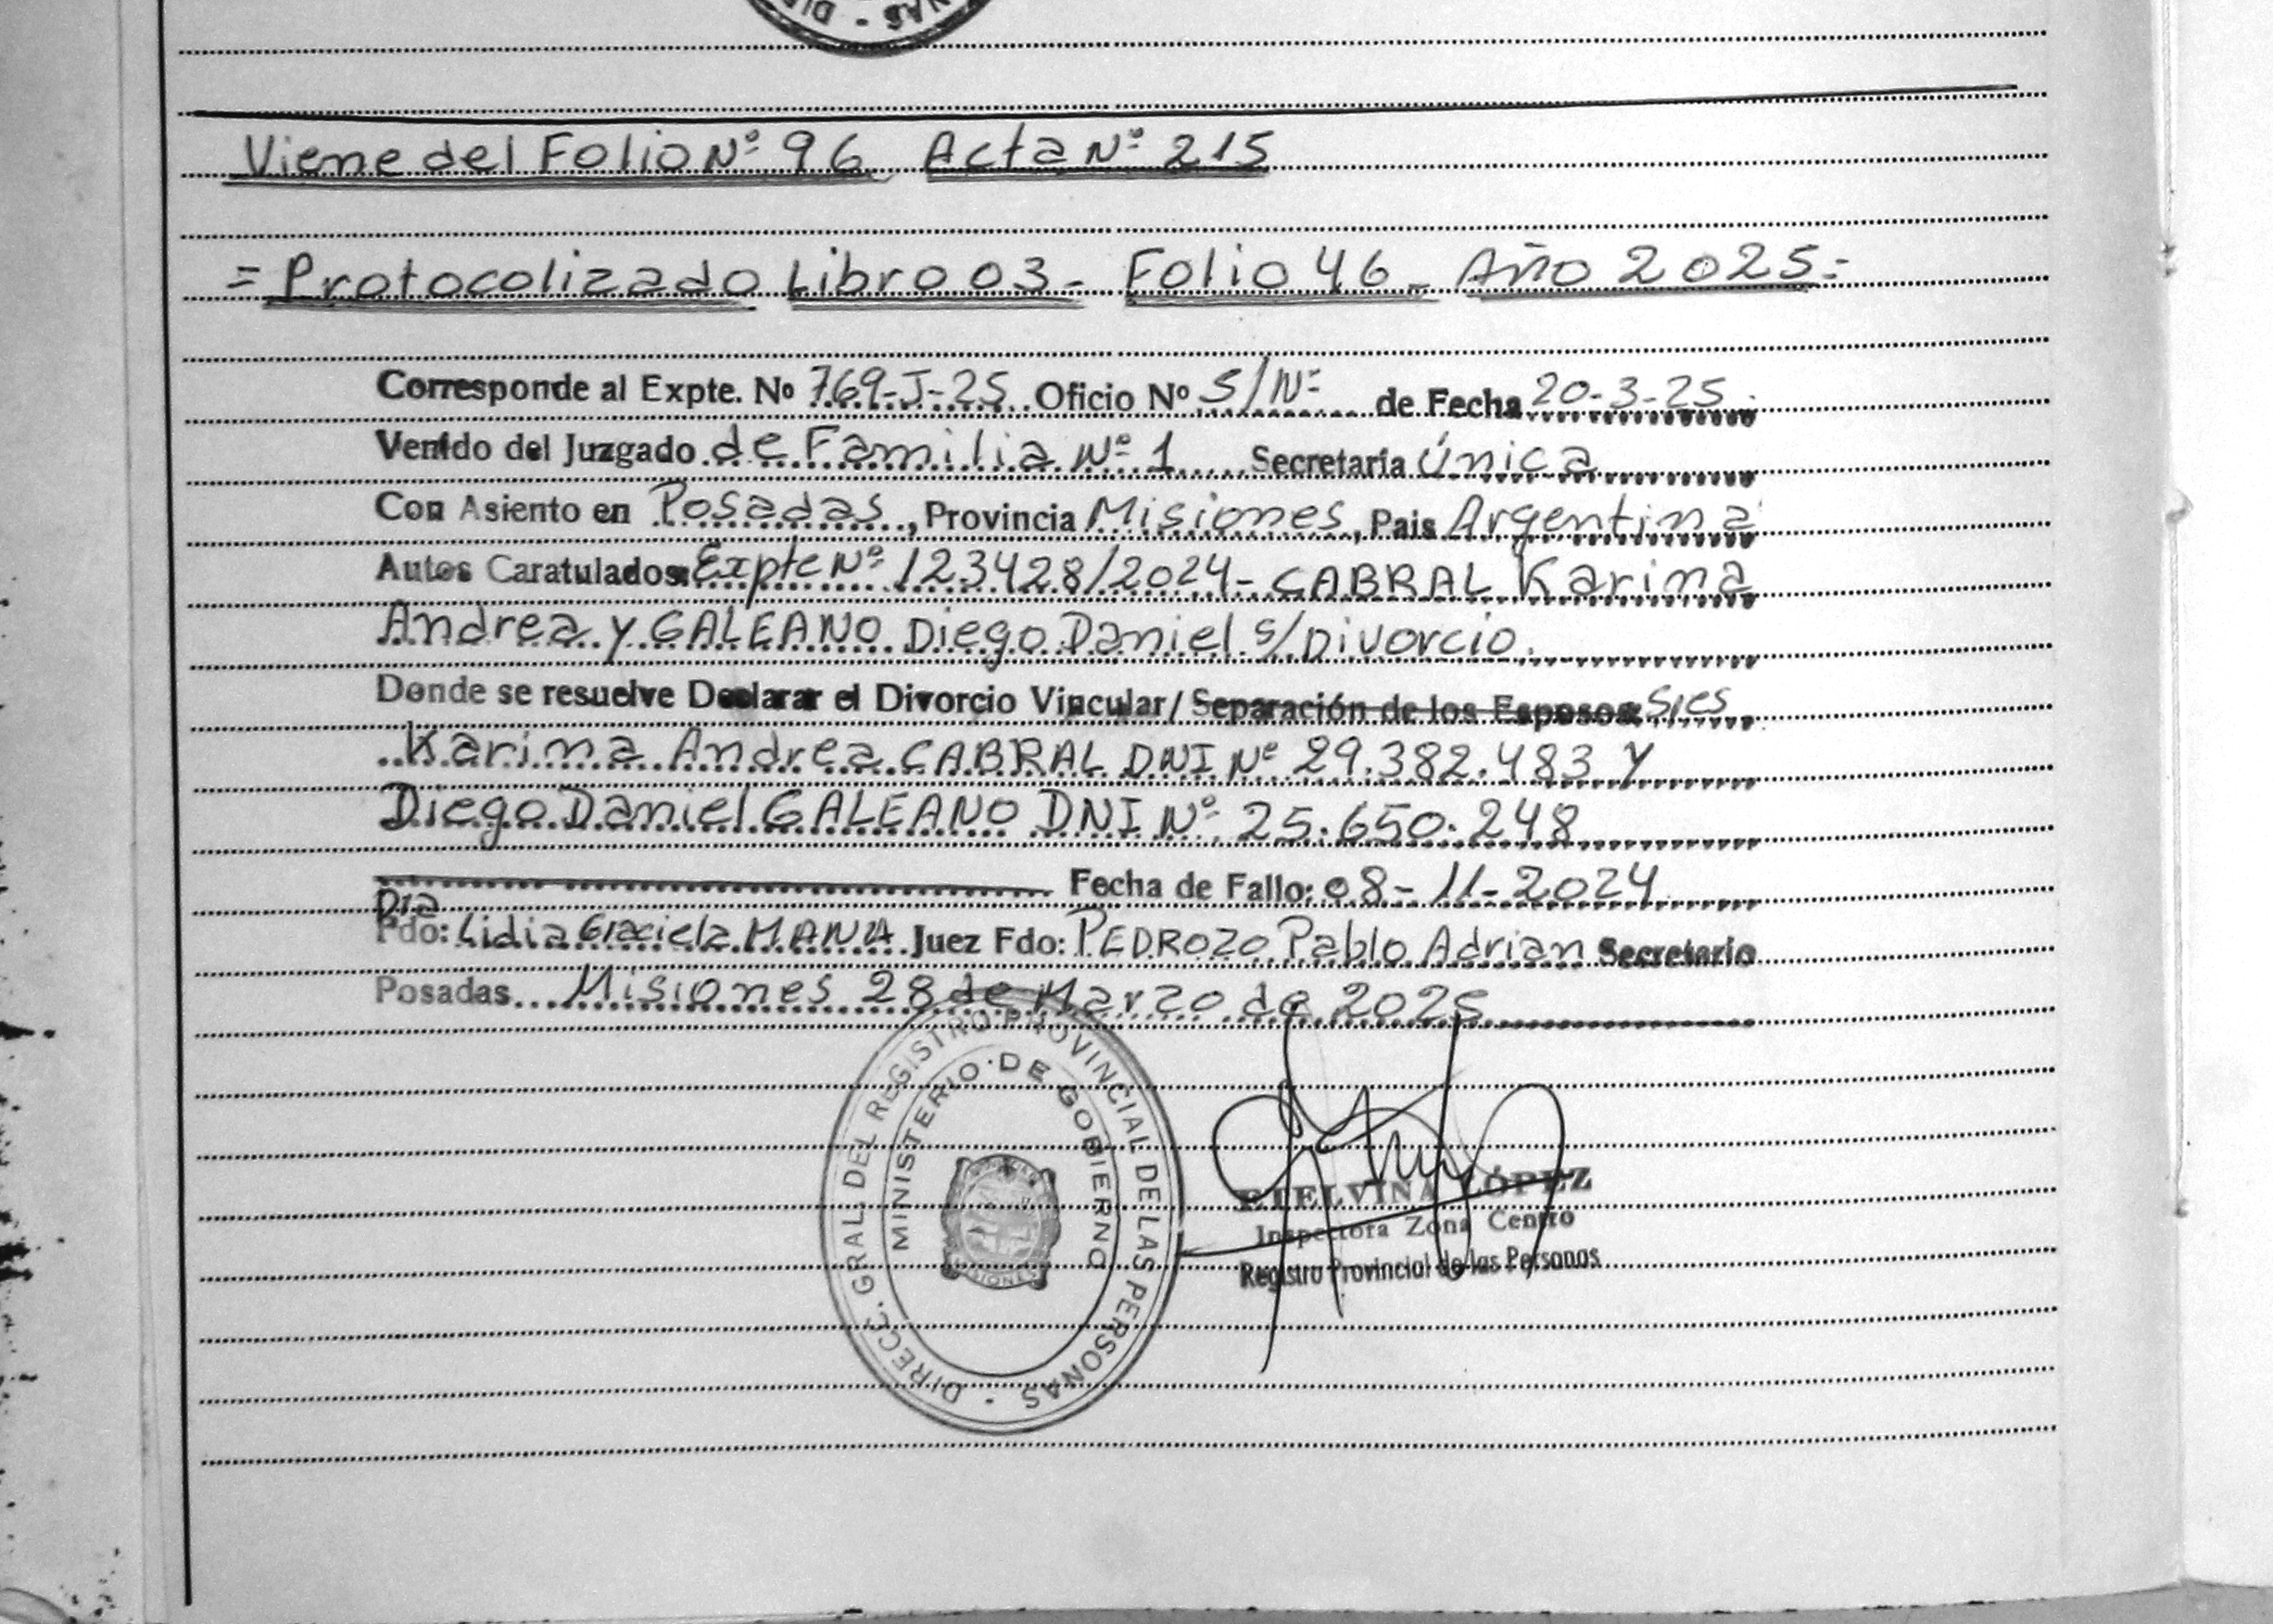 Viene del Folio Nº 96 Acta Nº 215
= Protocolizado Libro 03 - Folio 46 - Año 2025 =
Corresponde al Expte. Nº 769-J-25 Oficio Nº S/Nº de Fecha 20-3-25
Venido del Juzgado de Familia Nº 1 Secretaría Única
Con Asiento en Posadas, Provincia Misiones, Pais Argentina
Autos Caratulados: Expte Nº 123428/2024 - CABRAL Karina
Andrea y GALEANO Diego Daniel s/Divorcio.
Donde se resuelve Declarar el Divorcio Vincular/ Separación de los Esposos
Karina Andrea CABRAL DNI Nº 29.382.483 Y
Diego Daniel GALEANO DNI Nº 25.650.248
Fecha de Fallo: 08-11-2024
Dra
Fdo: Lidia Graciela Juez Fdo: PEDROZO Pablo Adrian Secretario
Posadas Misiones 28 de Marzo de 2025
DIRECC. GRAL. DEL REGISTRO PROVINCIAL DE LAS PERSONAS
MINISTERIO DE GOBIERNO
MISIONES
ETELVINA LÓPEZ
Inspectora Zona Centro
Registro Provincial de las Personas